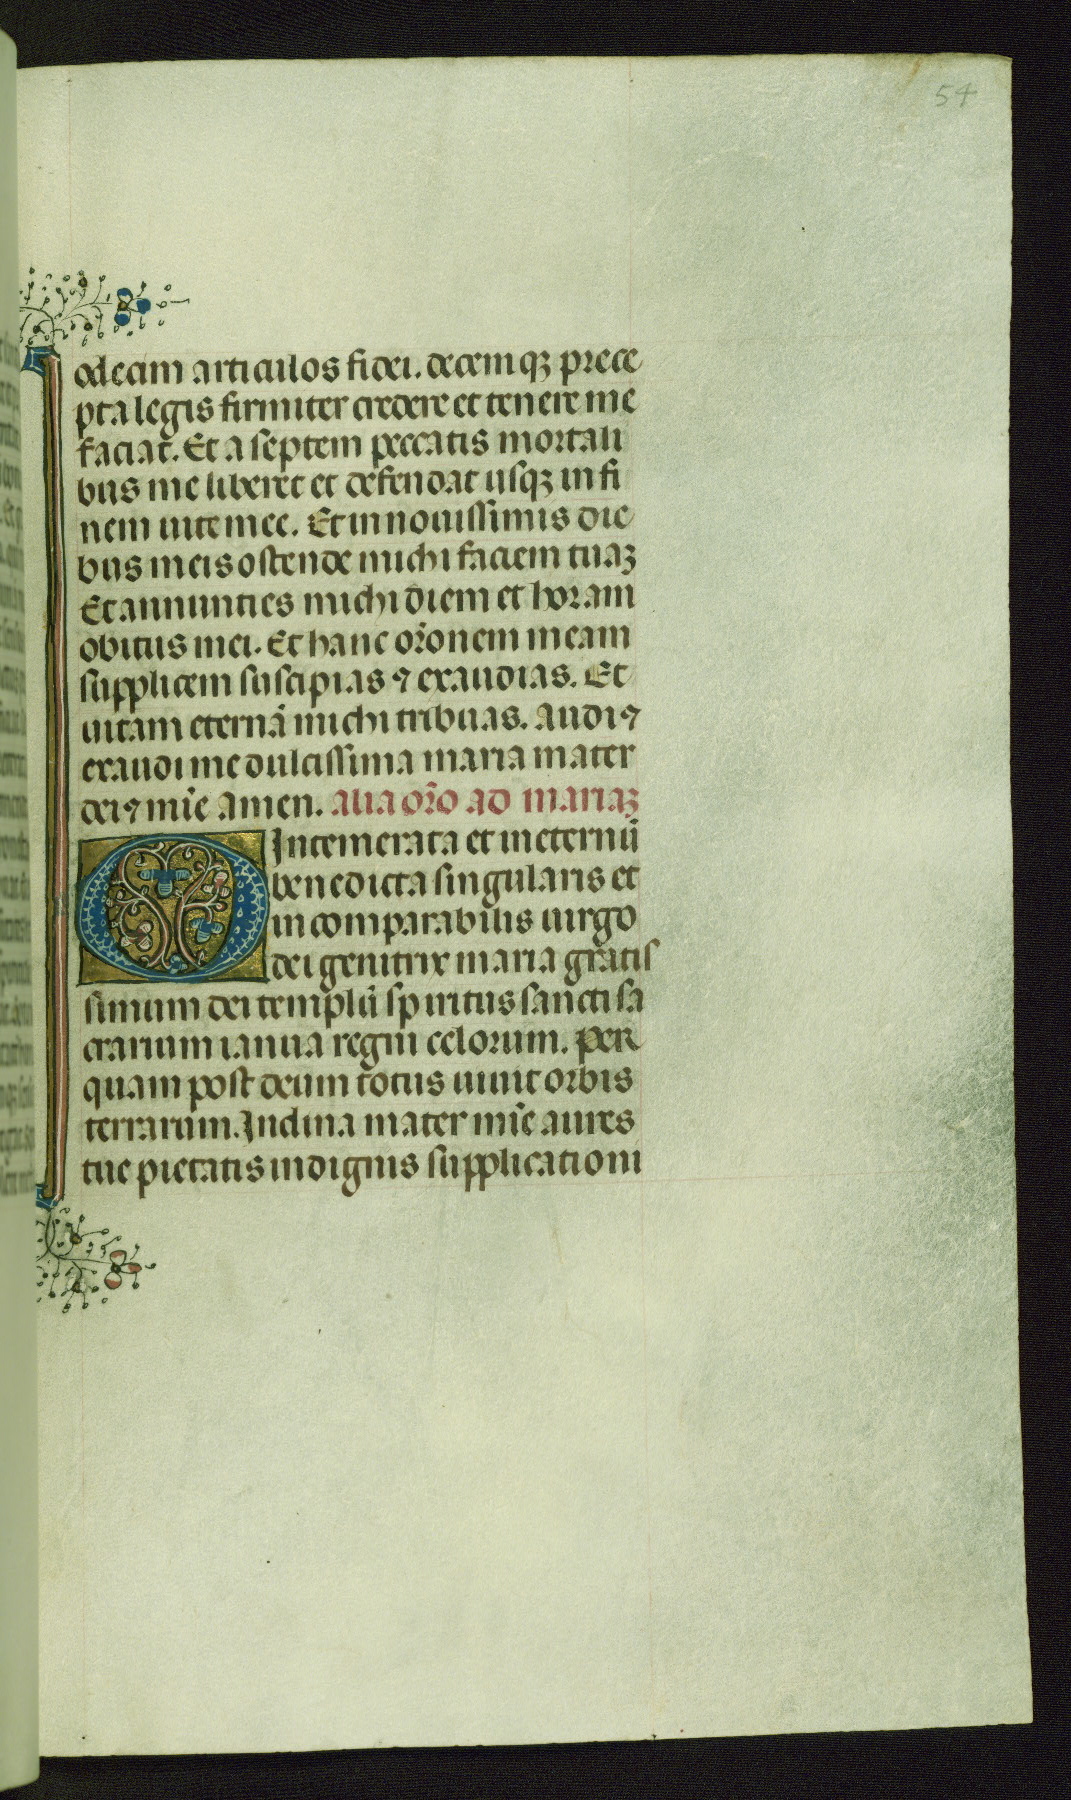 54
odecim articulos fidei. decemqꝫ prece
pta legis firmiter credere et tenere me
faciat. Et a septem peccatis mortali
bus me liberet et defendat usqꝫ in fi
nem uite mee. Et in nouissimis die
bus meis ostende michi faciem tuaꝫ
Et annunties michi diem et horam
obitus mei. Et hanc or̃onem meam
supplicem suscipias ⁊ exaudias. Et
uitam eternã michi tribuas. Audi ⁊
exaudi me dulcissima maria mater
dei ⁊ mĩe Amen. Alia or̃o ad mariaꝫ
O Intemerata et in eternũ
benedicta singularis et
incomparabilis uirgo
dei genitrix maria gratis
simum dei templũ spiritus sancti sa
crarium ianua regni celorum. per
quam post deum totus uiuit orbis
terrarum. Inclina mater mĩe aures
tue pietatis indignis supplicationi